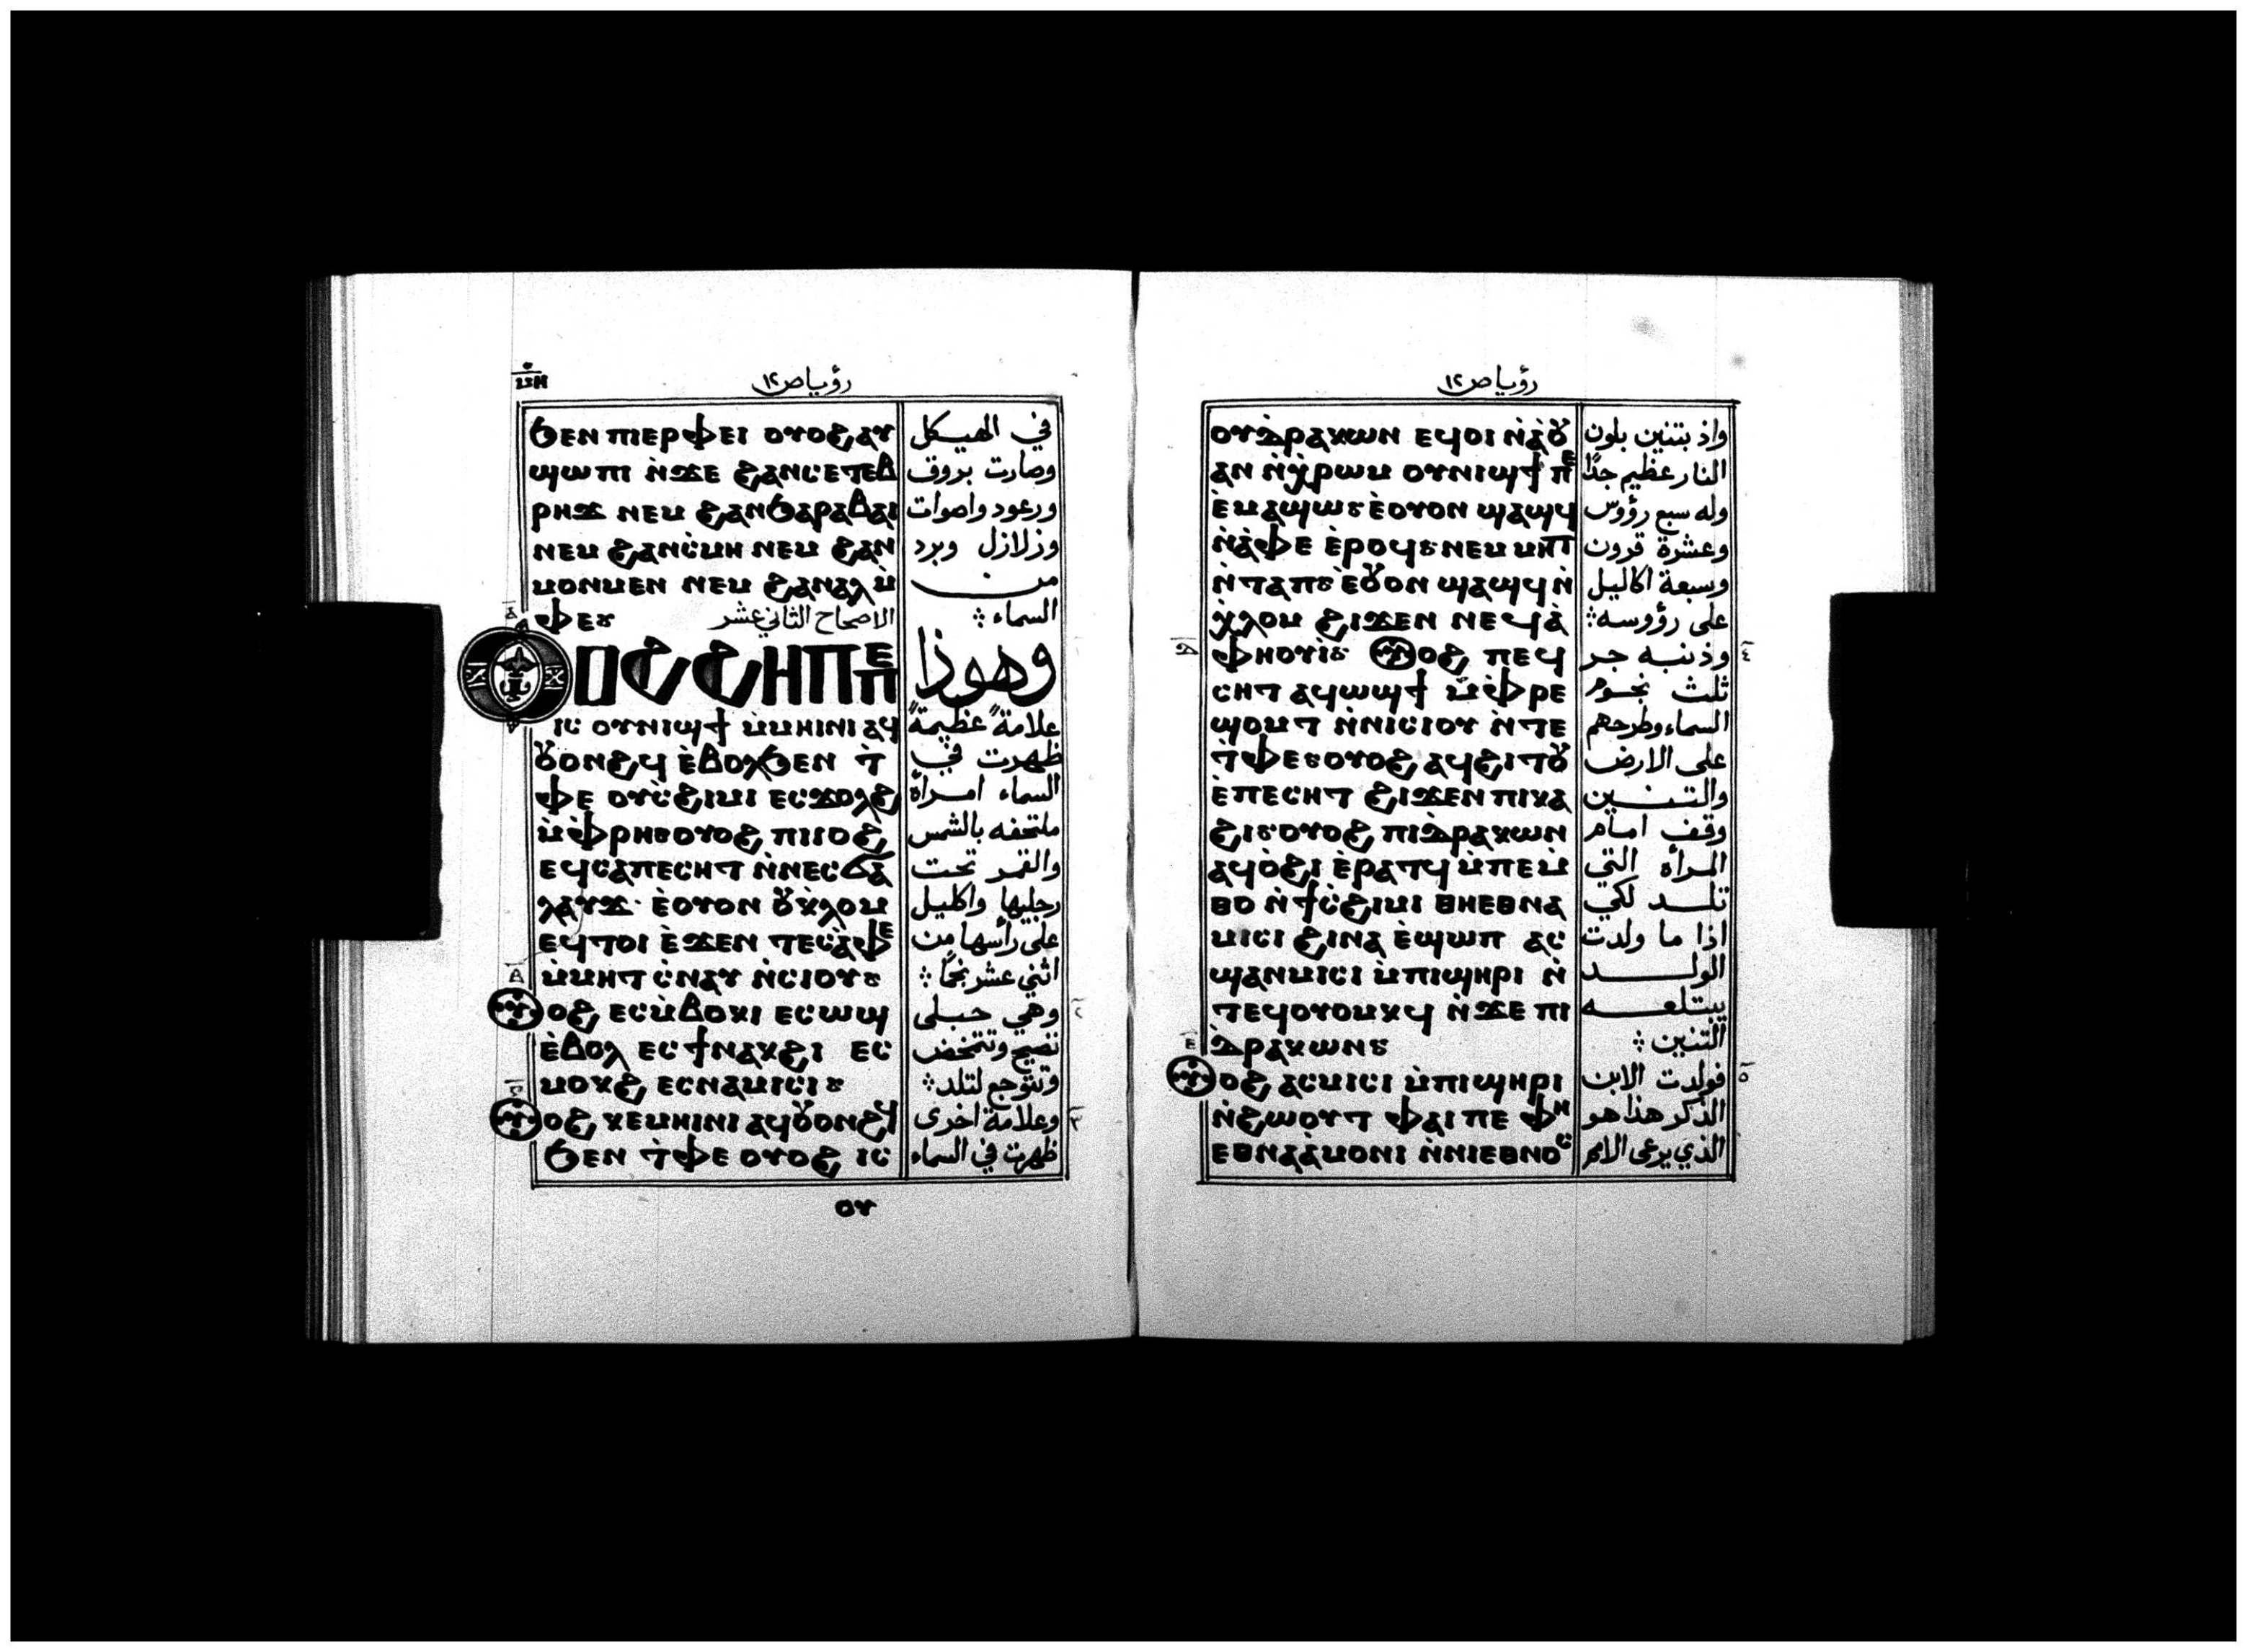 رؤيا ص١٢
ϧⲉⲛ ⲡⲓⲉⲣⲫⲉⲓ ⲟⲩⲟϩⲁⲩ
ϣⲱⲡⲓ ⲛ̀ϫⲉ ϩⲁⲛⲥⲉⲧⲉⲃ
ⲣⲏϫ ⲛⲉⲙ ϩⲁⲛϧⲁⲣⲁⲃⲁⲓ
ⲛⲉⲙ ϩⲁⲛⲥ̀ⲙⲏ ⲛⲉⲙ ϩⲁⲛ
ⲙⲟⲛⲙⲉⲛ ⲛⲉⲙ ϩⲁⲛⲁⲗⲙ̀
ⲫⲉⲩ
الاصحاح الثاني عشر
ⲟⲩⲟϩ ϩⲏⲡⲡⲉ
ⲓⲥ ⲟⲩⲛⲓϣϯ ⲙ̀ⲙⲏⲓⲛⲓ ⲁϥ
ⲟⲩⲟⲛϩϥ ⲉ̀ⲃⲟⲗϧⲉⲛ ⲧ̀
ⲫⲉ ⲟⲩⲥ̀ϩⲓⲙⲓ ⲉⲥϫⲟⲗϩ
ⲙ̀ⲫ̀ⲣⲏ ⲟⲩⲟϩ ⲡⲓⲓⲟϩ
ⲉϥⲥⲁⲡⲉⲥⲏⲧ ⲛ̀ⲛⲉⲥϭⲁ
ⲗⲁⲩϫ ⲉ̀ⲟⲩⲟⲛ ⲟⲩⲭ̀ⲗⲟⲙ
ⲉϥⲧⲟⲓ ⲉ̀ϫⲉⲛ ⲧⲉⲥⲁ̀ⲫⲉ
ⲙ̀ⲙⲏⲧ ⲥ̀ⲛⲁⲩ ⲛ̀ⲥⲓⲟⲩ
ⲟⲩⲟϩ ⲉⲥⲙ̀ⲃⲟⲕⲓ ⲉⲥⲱϣ
ⲉ̀ⲃⲟⲗ ⲉⲥϯⲛⲁⲕϩⲓ ⲉⲥ
ⲙⲟⲕϩ ⲉⲥⲛⲁⲙⲓⲥⲓ
ⲟⲩⲟϩ ⲕⲉⲙⲏⲓⲛⲓ ⲁϥⲟⲩⲟⲛϩϥ
ϧⲉⲛ ⲧ̀ⲫⲉ ⲟⲩⲟϩ ⲓⲥ
في الهيكل
وصارت بروق
ورعود واصوات
وزلازل وبرد
من
السماء
وهوذا
علامة عظيمة
ظهرت في
السماء امرأة
ملتحفه بالشمس
والقمر تحت
رجليها واكليل
على رأسها من
اثني عشر نجمًا
٢ وهي حبلى
تصيح وتتمخض
وتتوجع لتلد
٣ وعلامة اخرى
ظهرت في السماء
ⲟⲩ
رؤيا ص١٢
ⲟⲩⲇ̀ⲣⲁⲕⲱⲛ ⲉϥⲟⲓ ⲛ̀ⲁ̀ⲟⲩ
ⲁⲛ ⲛ̀ⲭ̀ⲣⲱⲙ ⲟⲩⲛⲓϣϯ ⲡⲉ
ⲉ̀ⲙⲁϣⲱ ⲉ̀ⲟⲩⲟⲛ ϣⲁϣϥ
ⲛ̀ⲁ̀ⲫⲉ ⲉ̀ⲣⲟϥ ⲛⲉⲙ ⲙⲏⲧ
ⲛ̀ⲧⲁⲡ ⲉ̀ⲟⲩⲟⲛ ϣⲁϣϥ ⲛ̀
ⲭ̀ⲗⲟⲙ ϩⲓϫⲉⲛ ⲛⲉϥⲁ̀
ⲫⲏⲟⲩⲓ̀ ⲟⲩⲟϩ ⲡⲉϥ
ⲥⲏⲧ ⲁϥⲱϣϯ ⲙ̀ⲫ̀ⲣⲉ
ϣⲟⲙⲧ ⲛ̀ⲛⲓⲥⲓⲟⲩ ⲛ̀ⲧⲉ
ⲧ̀ⲫⲉ ⲟⲩⲟϩ ⲁϥϩⲓⲧⲟⲩ
ⲉ̀ⲡⲉⲥⲏⲧ ϩⲓϫⲉⲛ ⲡⲓⲕⲁ
ϩⲓ ⲟⲩⲟϩ ⲡⲓⲇ̀ⲣⲁⲕⲱⲛ
ⲁϥⲟ̀ϩⲓ ⲉ̀ⲣⲁⲧϥ ⲙ̀ⲡⲉⲙ̀
ⲑⲟ ⲛ̀ϯⲥ̀ϩⲓⲙⲓ ⲑⲏⲉⲑⲛⲁ
ⲙⲓⲥⲓ ϩⲓⲛⲁ ⲉ̀ϣⲱⲡ ⲁⲥ
ϣⲁⲛⲙⲓⲥⲓ ⲙ̀ⲡⲓϣⲏⲣⲓ ⲛ̀
ⲧⲉϥⲟⲩⲟⲙⲕϥ ⲛ̀ϫⲉ ⲡⲓ
ⲇ̀ⲣⲁⲕⲱⲛ
ⲟⲩⲟϩ ⲁⲥⲙⲓⲥⲓ ⲙ̀ⲡⲓϣⲏⲣⲓ
ⲛ̀ϩⲱⲟⲩⲧ ⲫⲁⲓ ⲡⲉ ⲫⲏ
ⲉⲑⲛⲁⲁ̀ⲙⲟⲛⲓ ⲛ̀ⲛⲓⲉⲑⲛⲟⲥ
واذ بتنين بلون
النار عظيم جدًا
وله سبع رؤوس
وعشرة قرون
وسبعة اكاليل
على رؤوسه
٤ وذنبه جر
ثلث نجوم
السماء وطرحهم
على الارض
والتنين
وقف امام
المرأة التي
تلد لكي
اذا ما ولدت
الولد
يبتلعه
التنين
٥ فولدت الابن
الذكر هذا هو
الذي يرعى الامم